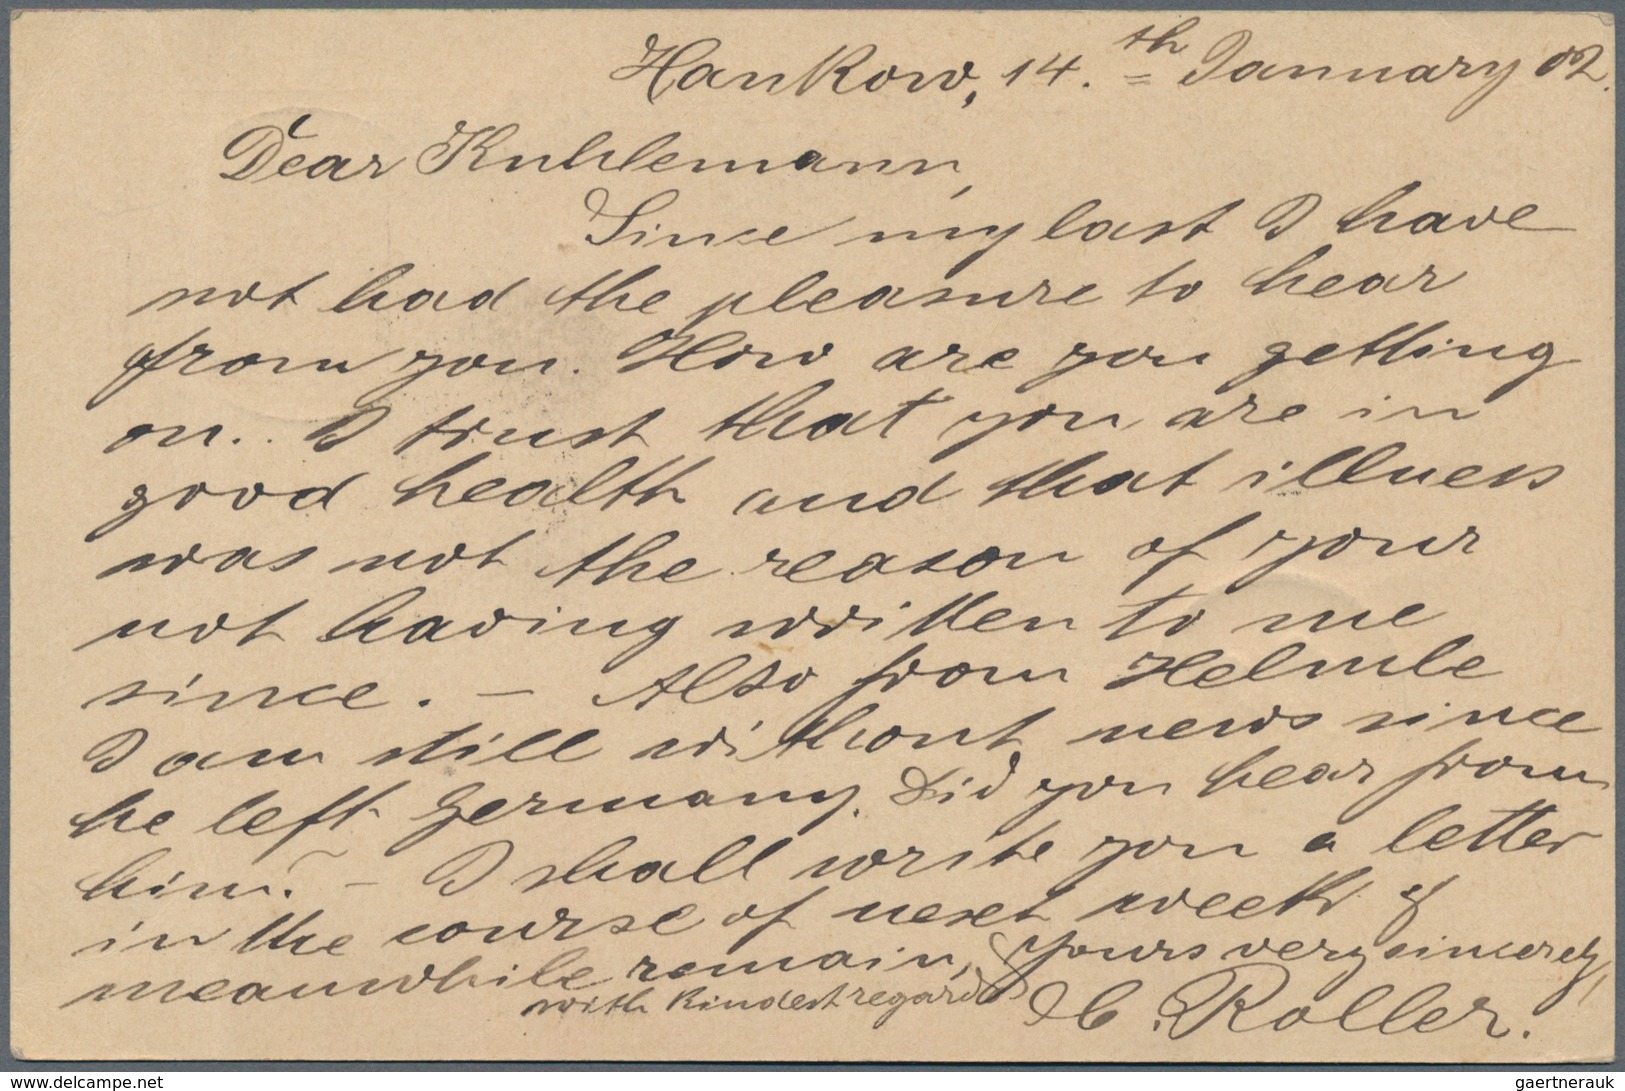 Hankow, 14.th January 02.
Dear Kuhlemann,
Since my last I have
not had the pleasure to hear
from you. How are you getting
on.. I trust that you are in
good health and that illness
was not the reason of your
not having written to me
since. — Also from Helmle
I am still without news since
he left Germany. Did you hear from
him? — I shall write you a letter
in the course of next week &
meanwhile remain, Yours very sincerely,
with kindest regards
C. Roller.
www.delcampe.net
gaertnerauk